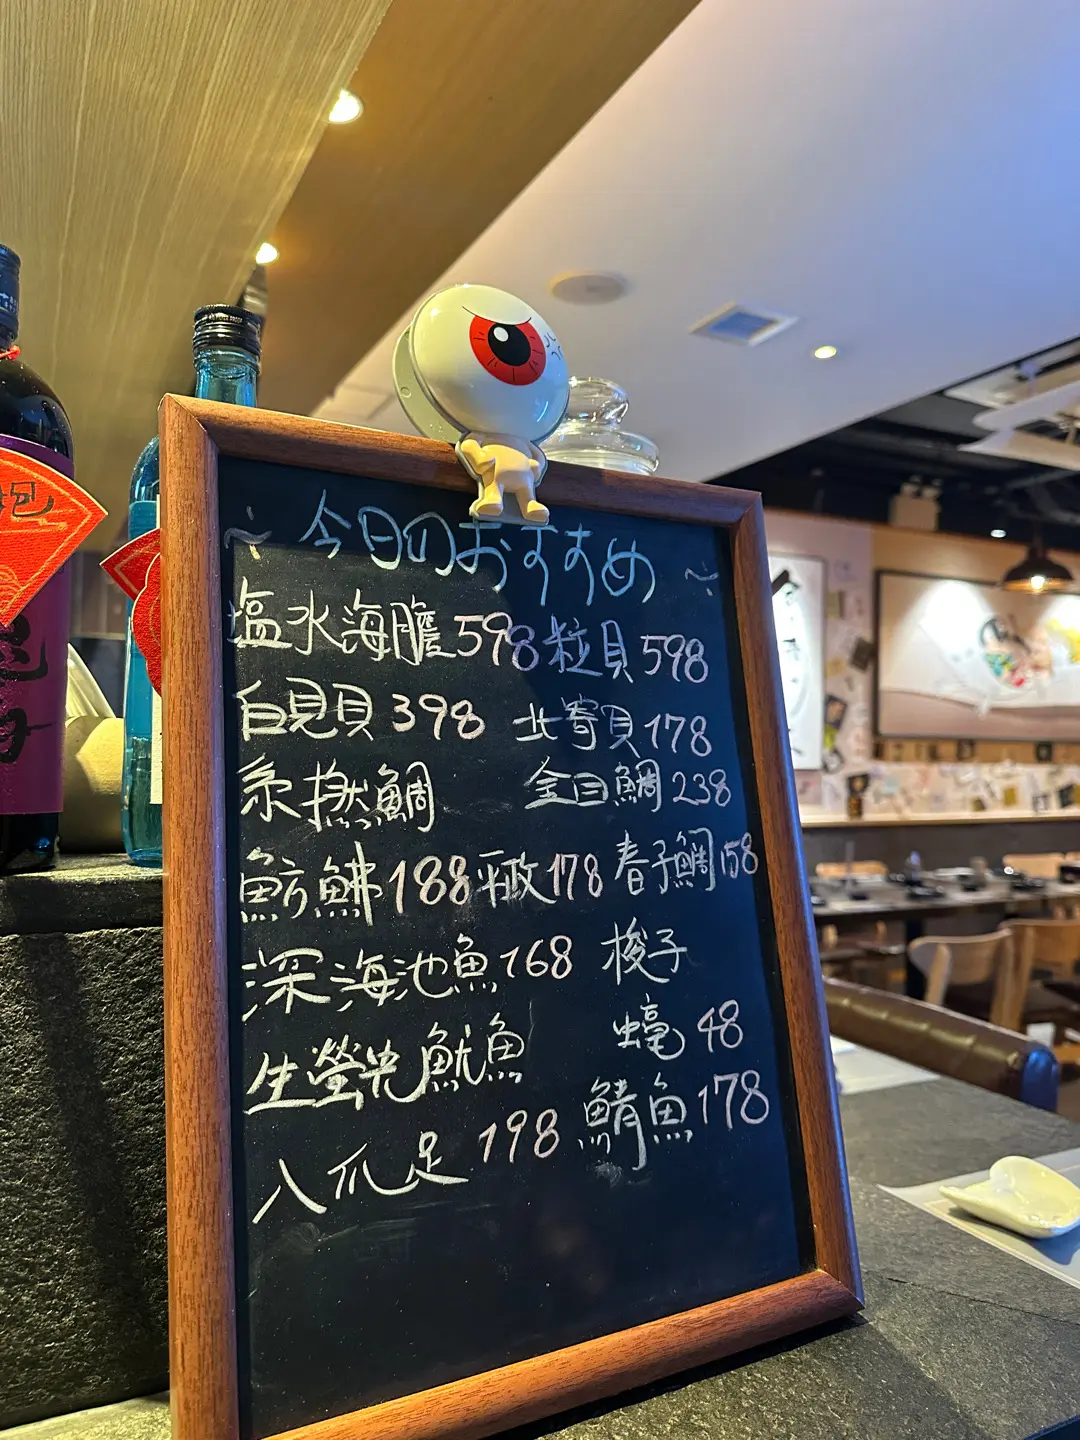 ~ 今日のおすすめ ~
塩水海膽 598 粒貝 598
白見貝 398 北寄貝 178
糸撚鯛 金目鯛 238
魴鮄 188 平政 178 春子鯛 158
深海池魚 168 梭子
生螢光魷魚 蠔 48
八爪足 198 鯖魚 178